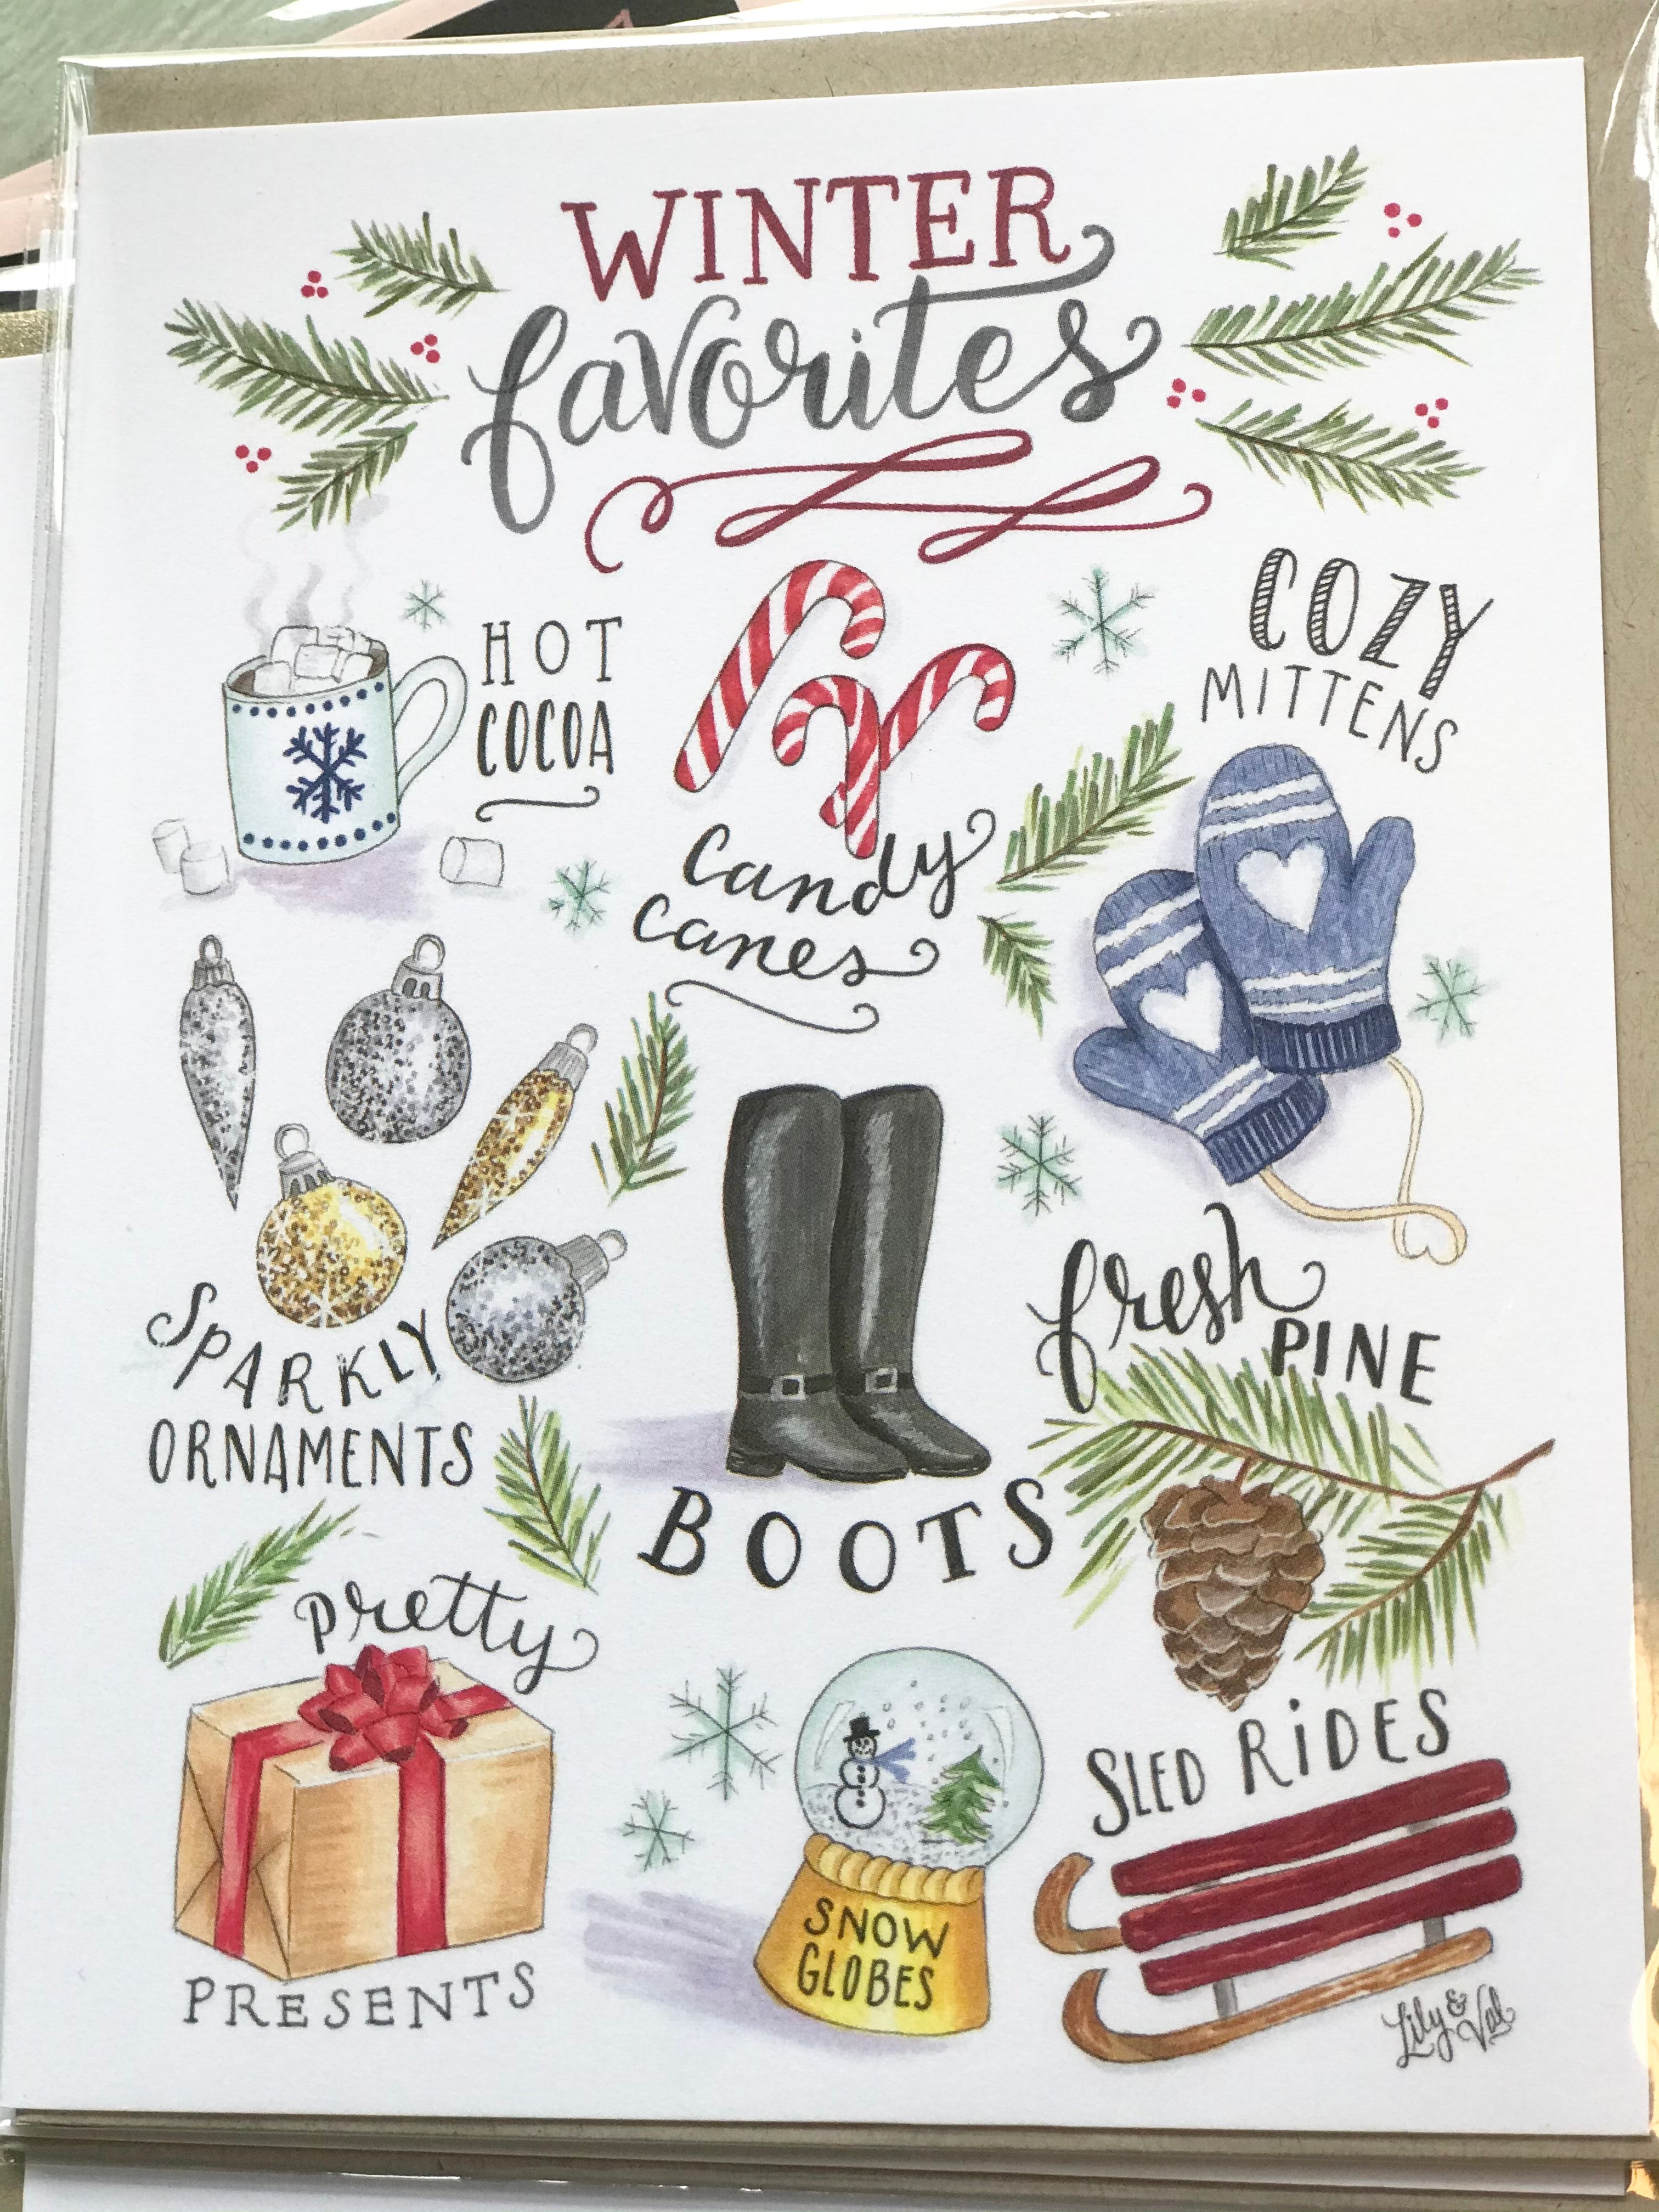 WINTER
favorites
HOT
COCOA
Candy
canes
COZY
MITTENS
SPARKLY
ORNAMENTS
BOOTS
fresh
PINE
pretty
PRESENTS
SNOW
GLOBES
SLED RiDES
Lily &
Val